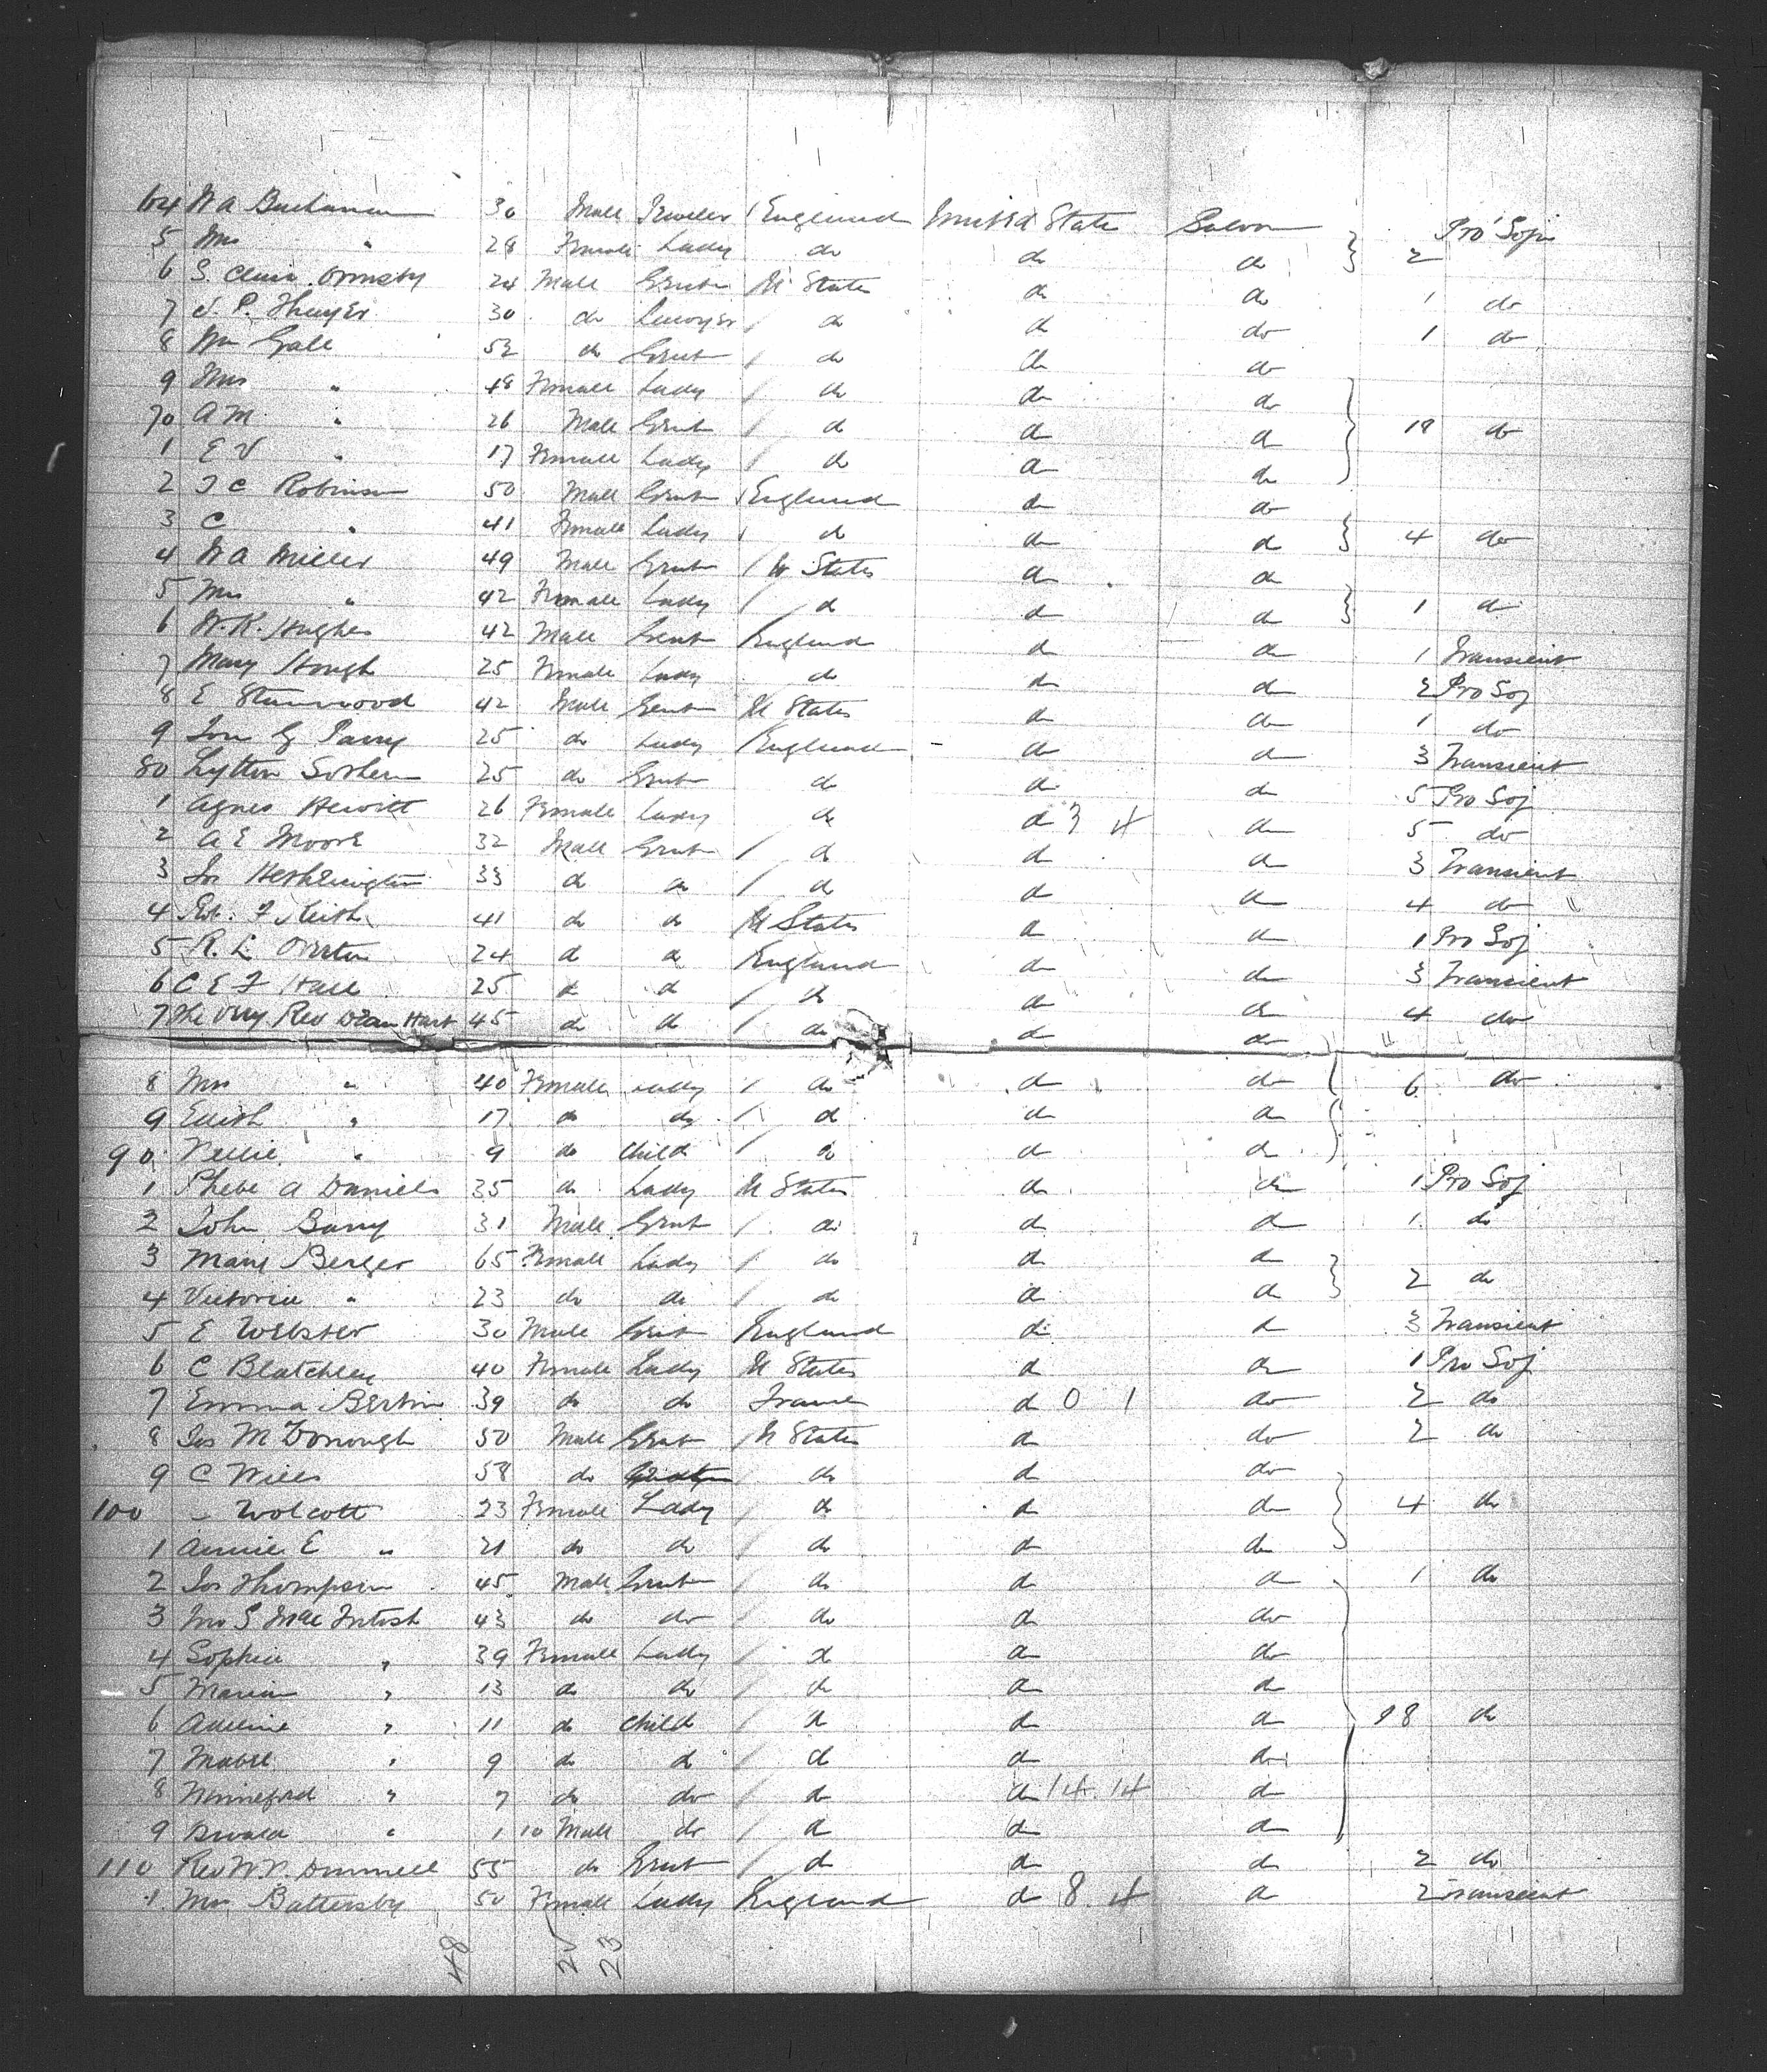 64 W A Buchanan 30 Male Jeweler England United States Saloon
5 Mrs " 28 Female Lady do do do } 2 Pro Soj
6 S. Clair Ormsby 24 Male Gent U States do do 1 do
7 J. P. Thayer 30 do Lawyer do do do 1 do
8 Wm Gall 52 do Gent do do do
9 Mrs " 48 Female Lady do do do
70 A M " 26 Male Gent do do do } 18 do
1 E V " 17 Female Lady do do do
2 T C Robinson 50 Male Gent England do do
3 C " 41 Female Lady do do do } 4 do
4 W A Miller 49 Male Gent U States do do
5 Mrs " 42 Female Lady do do do } 1 do
6 W. K. Hughes 42 Male Gent England do do 1 Transient
7 Mary Hough 25 Female Lady do do do 2 Pro Soj
8 E Stanwood 42 Male Gent U States do do 1 do
9 Tom G Parry 25 do Lady England do do 3 Transient
80 Lytton Sothern 25 do Gent do do do 5 Pro Soj
1 Agnes Hewitt 26 Female Lady do do 3 4 do 5 do
2 A E Moore 32 Male Gent do do do 3 Transient
3 Jos Hetherington 33 do do do do do 4 do
4 Edw. F Keith 41 do do U States do do 1 Pro Soj
5 R. L. Orrston 24 do do England do do 3 Transient
6 C E F Hall 25 do do do do do 4 do
7 The Very Rev Dean Hart 45 do do do do do
8 Mrs " 40 Female Lady do do do 6 do
9 Edith " 17 do do do do do
90 Nellie " 9 do Child do do do
1 Phebe A Daniels 35 do Lady U States do do 1 Pro Soj
2 John Barry 31 Male Gent do do do 1 do
3 Mary Berger 65 Female Lady do do do
4 Victoria " 23 do do do do do } 2 do
5 E Webster 30 Male Gent England do do 3 Transient
6 C Blatchley 40 Female Lady U States do do 1 Pro Soj
7 Emma Bertin 39 do do France do 0 1 do 2 do
8 Jas McDonough 50 Male Gent U States do do 2 do
9 C Wills 58 do do do do
100 " Wolcott 23 Female Lady do do do } 4 do
1 Annie E " 21 do do do do do
2 Jos Thompson 45 Male Gent do do do 1 do
3 Jno S MacIntosh 43 do do do do do
4 Sophia " 39 Female Lady do do do
5 Marion " 13 do do do do do
6 Adeline " 11 do Child do do do 18 do
7 Mabel " 9 do do do do do
8 Winneford " 7 do do do do 14 14 do
9 " 1 10 Male do do do do
110 Rev W. V. 55 do Gent do do do 2 do
1 Mrs Battersby 50 Female Lady England do 8 4 do 2 Transient
48 25 23